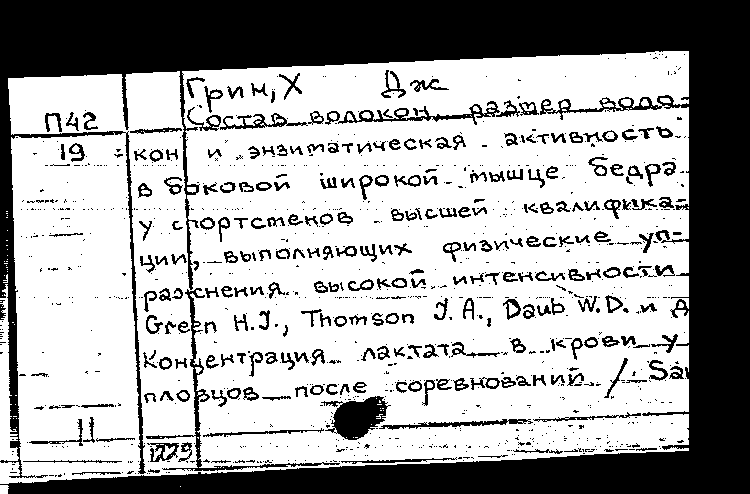 Грин, Х Дж
П42 Состав волокон, размер воло-
19 кон и энзиматическая активность
в боковой широкой мышце бедра
у спортсменов высшей квалифика-
ции, выполняющих физические уп-
ражнения высокой интенсивности
Green H.J., Thomson J.A., Daub W.D. и д
Концентрация лактата в крови у
пловцов после соревнований / Sa
11
1229